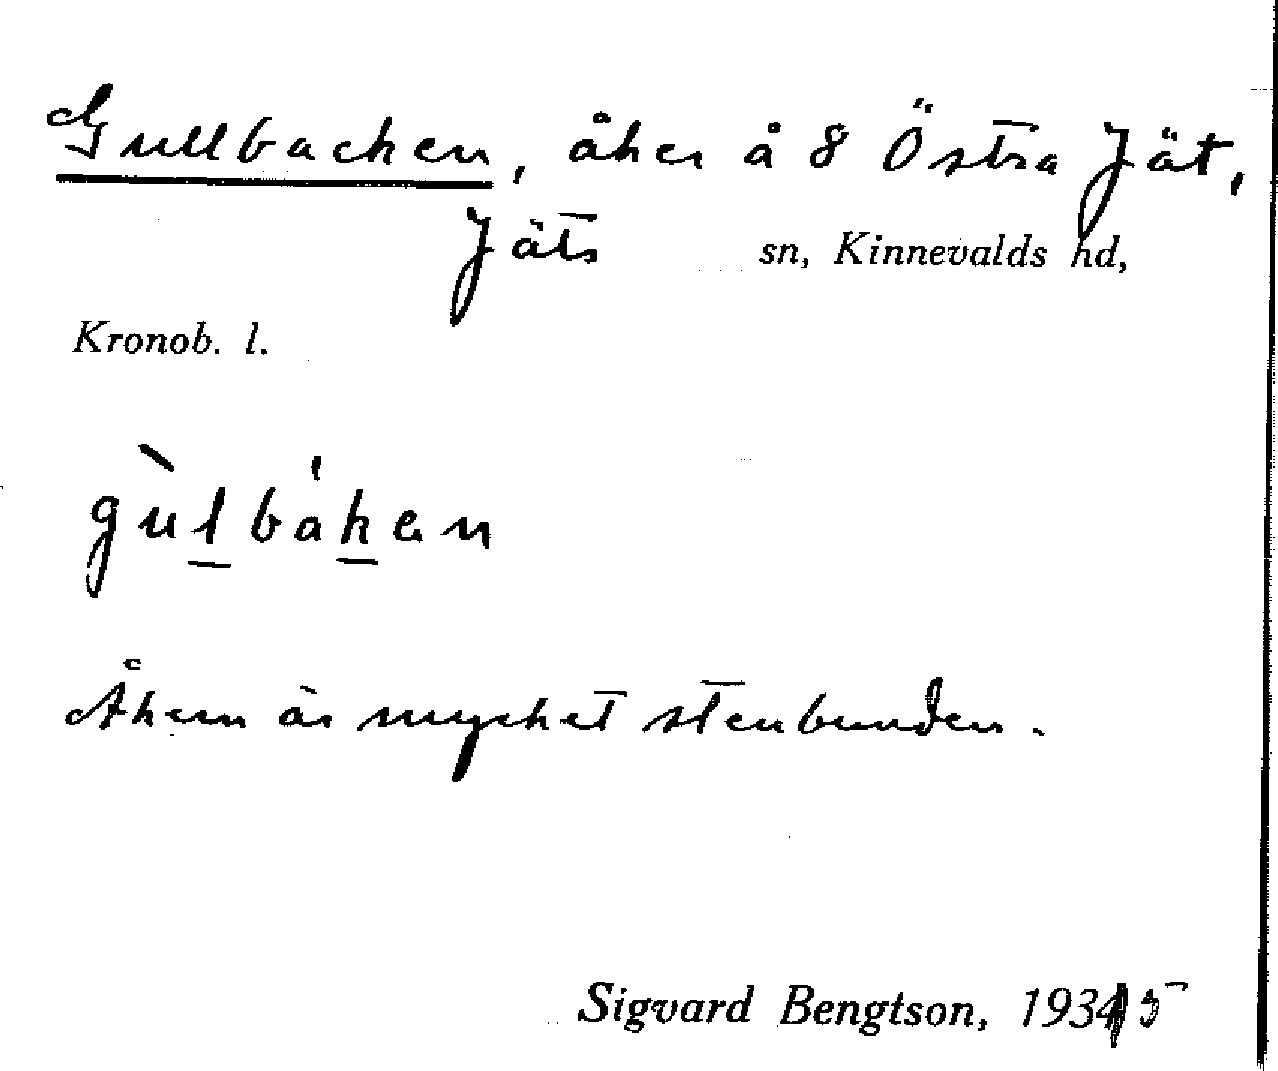 Gullbacken, åker å 8 Östra Jät,
Jäts sn, Kinnevalds hd,
Kronob. l.
gùlbáken
Åkern är mycket stenbunden.
Sigvard Bengtson, 1935